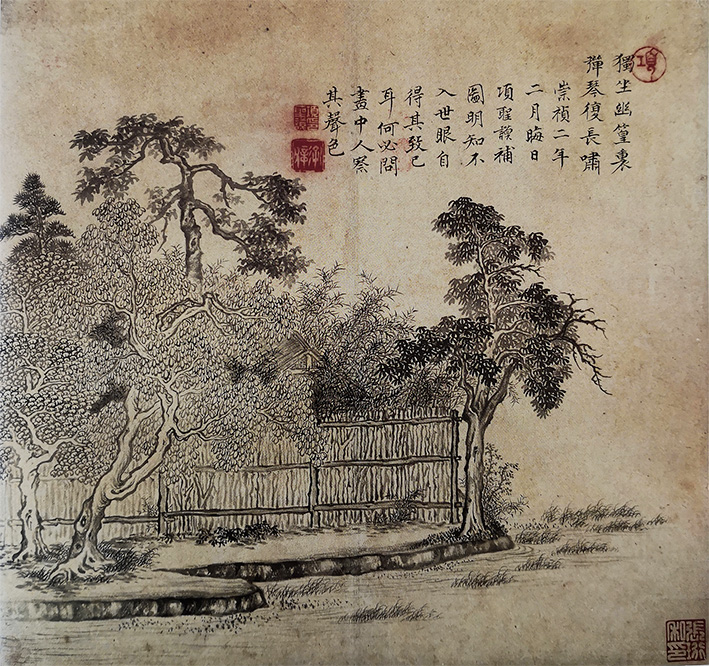 獨坐幽篁裏
彈琴復長嘯
崇禎二年
二月晦日
項聖謨補
圖明知不
入世眼自
得其致已
耳何必問
畫中人索
其聲色
項